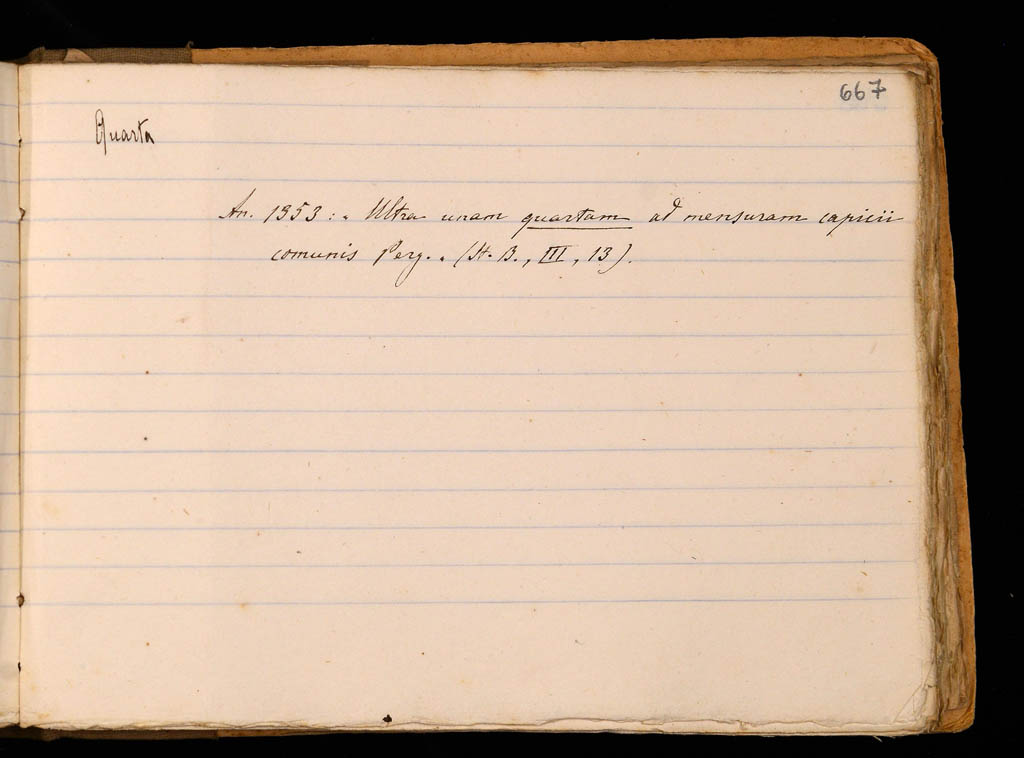 667
Quarta
An. 1353: „ Ultra unam quartam ad mensuram capicii
comunis Perg. „ (St. B., III, 13).